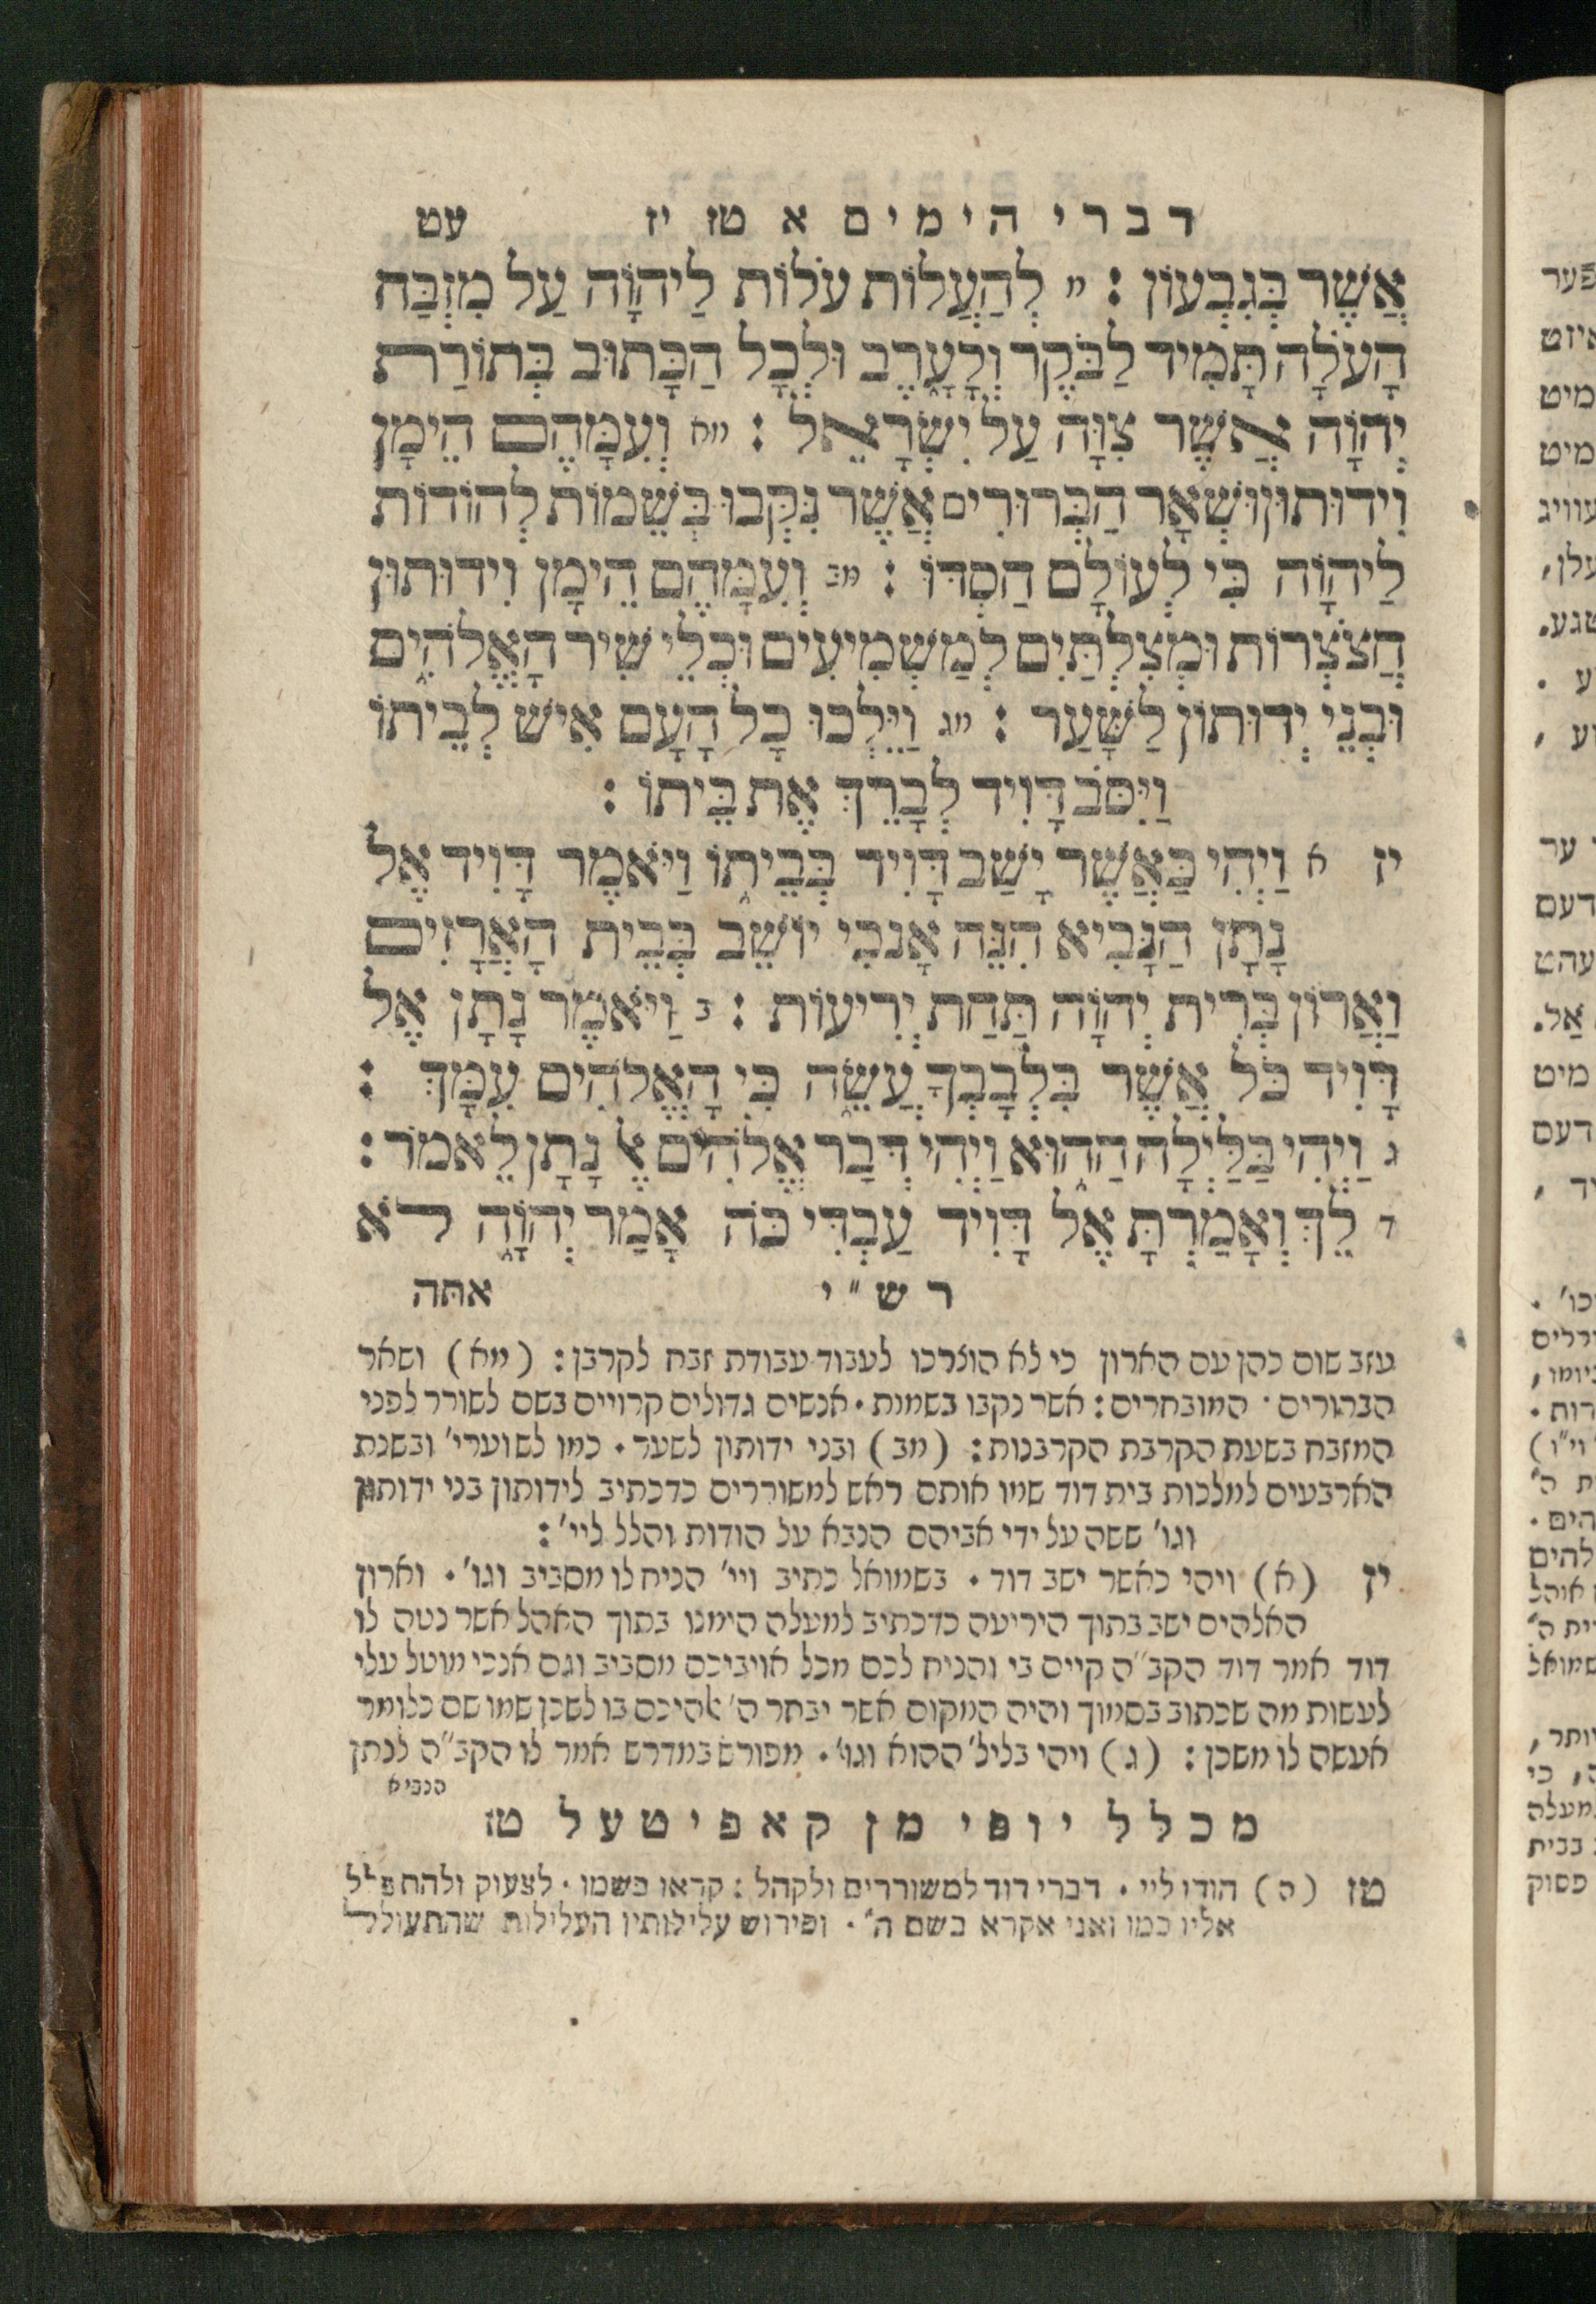 דברי הימים א טז יז עט
אֲשֶׁר בְּגִבְעוֹן : מ לְהַעֲלוֹת עֹלוֹת לַיהוָֹה עַל מִזְבַּח
הָעֹלָה תָּמִיד לַבֹּקֶר וְלָעָרֶב וּלְכָל הַכָּתוּב בְּתוֹרַת
יְהוָֹה אֲשֶׁר צִוָּה עַל יִשְׂרָאֵל : מא וְעִמָּהֶם הֵימָן
וִידוּתוּן וּשְׁאָר הַבְּרוּרִים אֲשֶׁר נִקְּבוּ בְּשֵׁמוֹת לְהוֹדוֹת
לַיהוָֹה כִּי לְעוֹלָם חַסְדּוֹ : מב וְעִמָּהֶם הֵימָן וִידוּתוּן
חֲצֹצְרוֹת וּמְצִלְתַּיִם לְמַשְׁמִיעִים וּכְלֵי שִׁיר הָאֱלֹהִים
וּבְנֵי יְדוּתוּן לַשָּׁעַר : מג וַיֵּלְכוּ כָל הָעָם אִישׁ לְבֵיתוֹ
וַיִּסֹּב דָּוִיד לְבָרֵךְ אֶת בֵּיתוֹ :
יז א וַיְהִי כַּאֲשֶׁר יָשַׁב דָּוִיד בְּבֵיתוֹ וַיֹּאמֶר דָּוִיד אֶל
נָתָן הַנָּבִיא הִנֵּה אָנֹכִי יוֹשֵׁב בְּבֵית הָאֲרָזִים
וַאֲרוֹן בְּרִית יְהוָֹה תַּחַת יְרִיעוֹת : ב וַיֹּאמֶר נָתָן אֶל
דָּוִיד כֹּל אֲשֶׁר בִּלְבָבְךָ עֲשֵׂה כִּי הָאֱלֹהִים עִמָּךְ :
ג וַיְהִי בַּלַּיְלָה הַהוּא וַיְהִי דְּבַר אֱלֹהִים אֶל נָתָן לֵאמֹר :
ד לֵךְ וְאָמַרְתָּ אֶל דָּוִיד עַבְדִּי כֹּה אָמַר יְהוָֹה לֹא
רש"י אתה
עזב שום כהן עם הארון כי לא הוצרכו לעבוד עבודת זבח לקרבן : (מא) ושאר
הברורים · המובחרים : אשר נקבו בשמות · אנשים גדולים קרויים בשם לשורר לפני
המזבח בשעת הקרבת הקרבנות : (מב) ובני ידותון לשער · כמו לשוערי' ובשנת
הארבעים למלכות בית דוד שמו אותם ראש למשוררים כדכתיב לידותון בני ידותון
וגו' ששה על ידי אביהם הנבא על הודות והלל ליי' :
יז (א) ויהי כאשר ישב דוד · בשמואל כתיב ויי' הניח לו מסביב וגו' · וארון
האלהים ישב בתוך היריעה כדכתיב למעלה הימנו בתוך האהל אשר נטה לו
דוד אמר דוד הקב"ה קיים בי והניח לכם מכל אויביכם מסביב וגם אנכי מוטל עלי
לעשות מה שכתוב בסמוך והיה המקום אשר יבחר ה' אהיכם בו לשכן שמו שם כלומר
אעשה לו משכן : (ג) ויהי בליל' ההוא וגו' · מפורש במדרש אמר לו הקב"ה לנתן
הנביא
מכלל יופי מן קאפיטעל טז
טז (ה) הודו ליי · דברי דוד למשוררים ולקהל : קראו בשמו · לצעוק ולהתפלל
אליו כמו ואני אקרא בשם ה' · ופירוש עלילותיו העלילות שהתעולל